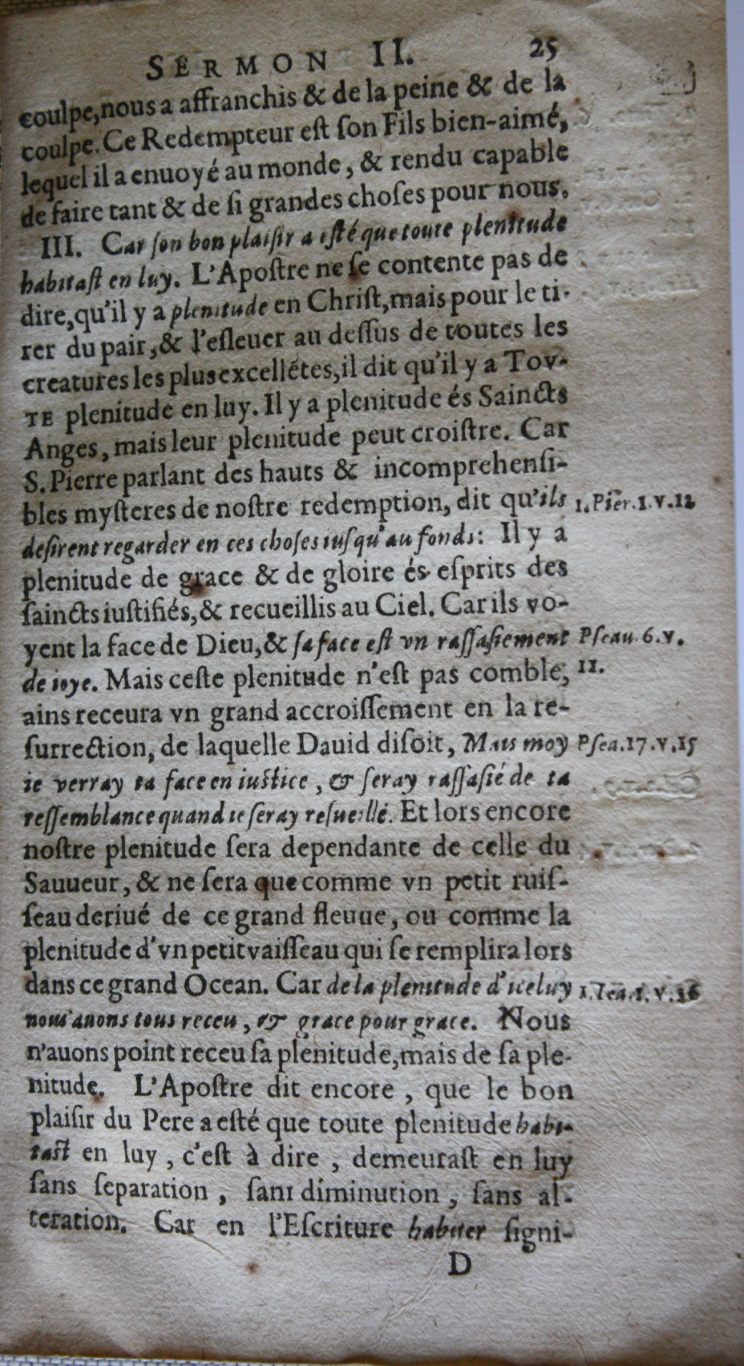 SERMON II. 25
coulpe,nous a affranchis & de la peine & de la
coulpe. Ce Redempteur eſt ſon Fils bien-aimé,
lequel il a enuoyé au monde, & rendu capable
de faire tant & de ſi grandes choſes pour nous.
III. Car ſon bon plaiſir a eſté que toute plenitude
habitaſt en luy. L'Apoſtre ne ſe contente pas de
dire,qu'il y a plenitude en Chriſt,mais pour le ti-
rer du pair,& l'eſleuer au deſſus de toutes les
creatures les plus excellẽtes,il dit qu'il y a TOV-
TE plenitude en luy. Il y a plenitude és Saincts
Anges, mais leur plenitude peut croiſtre. Car
S. Pierre parlant des hauts & incomprehenſi-
bles myſteres de noſtre redemption, dit qu'ils 1. Pier. 1. v. 12
deſirent regarder en ces choſes iuſqu'au fonds: Il y a
plenitude de grace & de gloire és eſprits des
ſaincts iuſtifiés,& recueillis au Ciel. Car ils vo-
yent la face de Dieu,& ſa face eſt vn raſſaſiement Pſeau. 6. v.
de ioye. Mais ceſte plenitude n'eſt pas comble, 11.
ains receura vn grand accroiſſement en la re-
ſurrection, de laquelle Dauid diſoit, Mais moy Pſea. 17. v. 15
ie verray ta face en iuſtice, & ſeray raſſaſié de ta
reſſemblance quand ie ſeray reſueillé. Et lors encore
noſtre plenitude ſera dependante de celle du
Sauueur, & ne ſera que comme vn petit ruiſ-
ſeau deriué de ce grand fleuue, ou comme la
plenitude d'vn petit vaiſſeau qui ſe remplira lors
dans ce grand Ocean. Car de la plenitude d'iceluy 1. Iea. 1. v. 16
nous auons tous receu, & grace pour grace. Nous
n'auons point receu ſa plenitude,mais de ſa ple-
nitude. L'Apoſtre dit encore, que le bon
plaiſir du Pere a eſté que toute plenitude habi-
taſt en luy, c'eſt à dire, demeuraſt en luy
ſans ſeparation, ſans diminution, ſans al-
teration. Car en l'Eſcriture habiter ſigni-
D